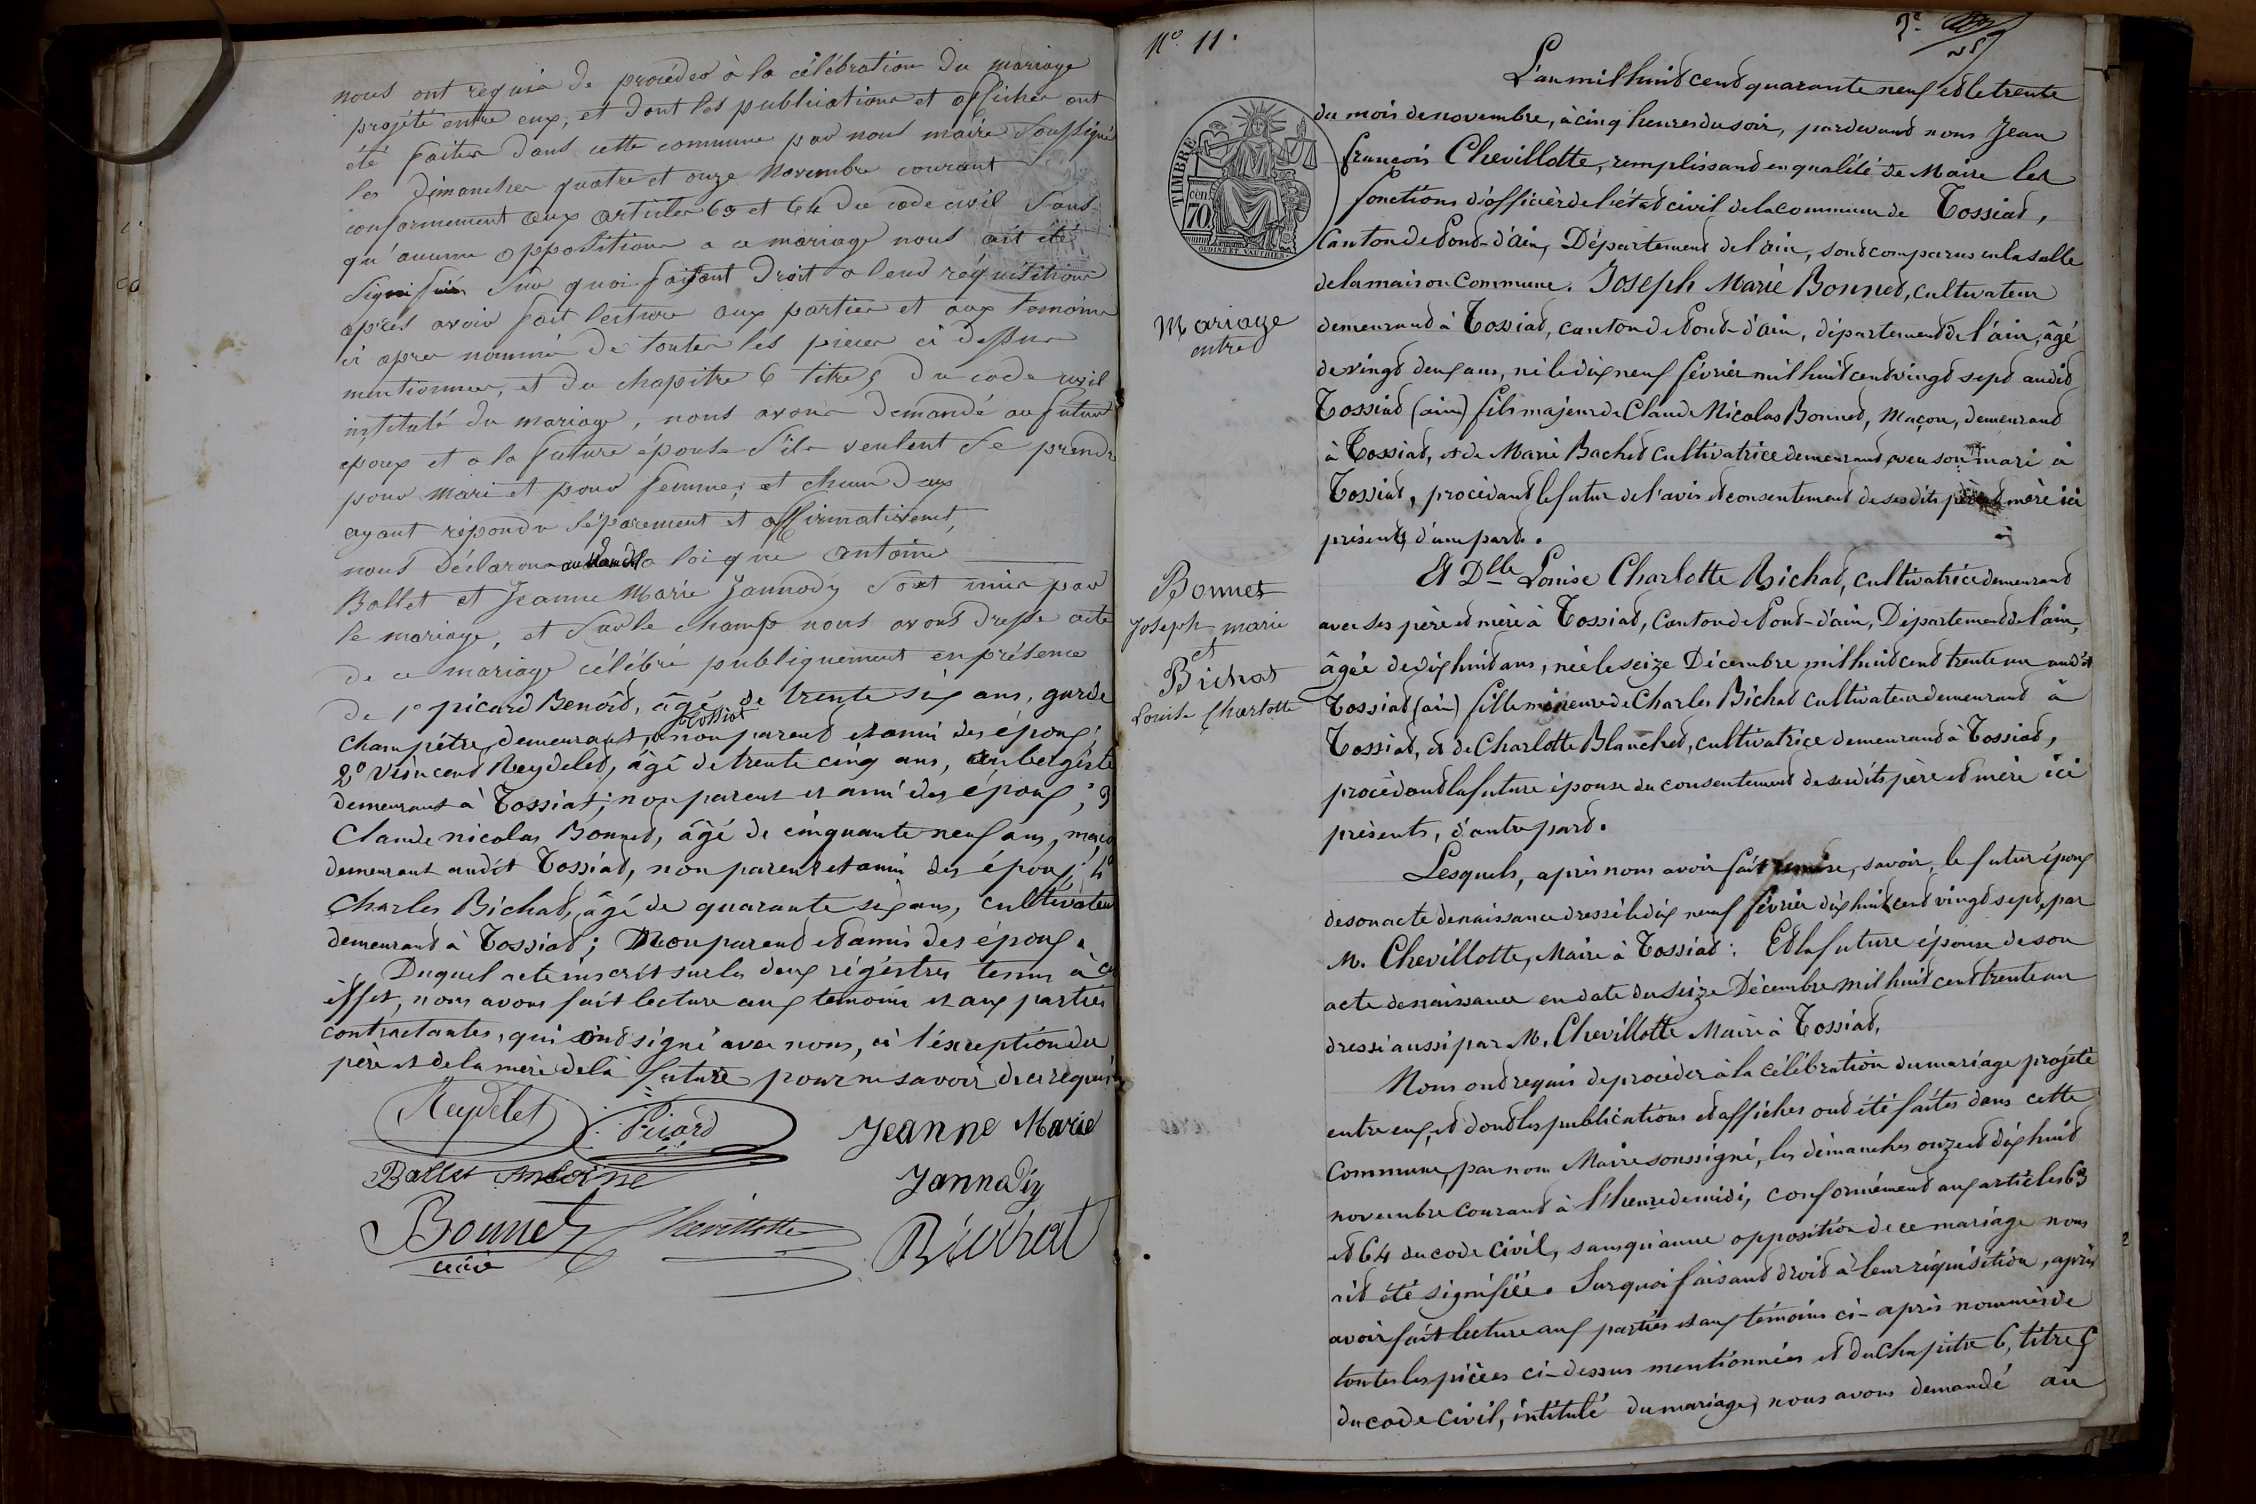 nous ont requis de procéder à la célébration du mariage
projété entre eux, et dont les publications et affiches ont
été faites dans cette commune par nous maire soussigné
les dimanches quatre et onze Novembre courant
conformement aux articles 63 et 64 du code civil sans
qu'aucune opposition a ce mariage nous ait été
signifiée sur quoi faisant droit a leur réquisition
après avoir fait lecture aux parties et aux temoins
ci apres nommés de toutes les pieces ci dessus
mentionnees, et du chapitre 6 titre 5 du code civil
intitulé du mariage, nous avons demandé au futur
epoux et a la future épouse s'ils veulent se prendre
pour mari et pour femme; et chacun d'eux
ayant répondu séparement et affirmativement,
nous déclarons au nom de la loi que Antoine
Ballet et Jeanne Marie Jannody sont unis par
le mariage, et sur le champ nous avons dressé acte
de ce mariage célébré publiquement en présence
de 1º picard Benoid, âgé de trente six ans, garde
champétre, demeurant à Tossiat, non parend et ami des époux;
2º Vincend Reydeled, âgé de trente cinq ans, aubergiste
demeurant à Tossiat; non parent et ami des époux; 3
Claude nicolas Bonned, âgé de cinquante neuf ans, maço
demeurant audit Tossiad, non parent et ami des époux; 4º
Charles Bichad, âgé de quarante six ans, cultivateur
demeurand à Tossiad; Non parend et amis des époux.
Duquel acte inscrit sur les deux régistres tenus à cet
effet, nous avons fait lecture aux temoins et aux parties
contractantes, qui ond signé avec nous, à l'exception du
père et de la mère de la future pour ne savoir de ce requis
Reydelet Picard Jeanne Marie
Ballet Antoine Jannody
Bonnet Chevillotte Bichat
Nº 11.
Mariage
entre
Bonnet
Joseph marie
et
Bichat
Louise Charlotte
TIMBRE
70
L'an mil huid cend quarante neuf et le trente
du mois de novembre, à cinq heures du soir, pardevand nous Jean
françois Chevillotte, remplissand en qualité de Maire les
fonctions d'officier de l'étad civil de la commune de Tossiad,
Canton de Pond-d'ain, Département de l'ain, sond comparus en la salle
de la maison Commune. Joseph Marie Bonned, cultivateur
demeurand à Tossiad, canton de Pond-d'ain, département de l'ain, âgé
de vingd deux ans, né le dix neuf février mil huid cend vingd sept audid
Tossiad (ain) fils majeur de Claude Nicolas Bonned, Maçon, demeurand
à Tossiad, et de Marie Bached cultivatrice demeurand avec son mari à
Tossiad, procédand le futur de l'avis et consentement de ses dits père et mère ici
présents, d'une part.
Et Dlle Louise Charlotte Bichad, cultivatrice demeurand
avec ses père et mère à Tossiad, Canton de Pond-d'ain, Département de l'ain,
âgée de dix huid ans, née le seize Décembre mil huid cend trente un audit
Tossiad (ain) fille mineure de Charles Bichad cultivateur demeurand à
Tossiad, et de Charlotte Blanched, cultivatrice demeurand à Tossiad,
procédand la future épouse du consentement de ses dits père et mère ici
présents, d'autre part.
Lesquels, après nous avoir fait remettre, savoir, le futur époux
de son acte de naissance dressé le dix neuf février dix huit cend vingd sept, par
M. Chevillotte, Maire à Tossiad: Et la future épouse de son
acte de naissance en date du seize Décembre mil huid cend trente un
dressé aussi par M. Chevillotte Maire à Tossiad,
Nous ond requis de procéder à la célébration du mariage projeté
entre eux, et dont les publications et affiches ond été faites dans cette
Commune, par nous Maire soussigné, les dimanches onze et dix huid
novembre courand à l'heure de midi, conformémend aux articles 63
et 64 du code Civil, sans qu'aucune opposition de ce mariage nous
aid été signifiée. Sur quoi faisand droid à leur réquisition, après
avoir fait lecture aux parties et aux témoins ci-après nommés de
toutes les pièces ci-dessus mentionnées et du Chapitre 6, titre 5
du code Civil, intitulé du mariage, nous avons demandé au